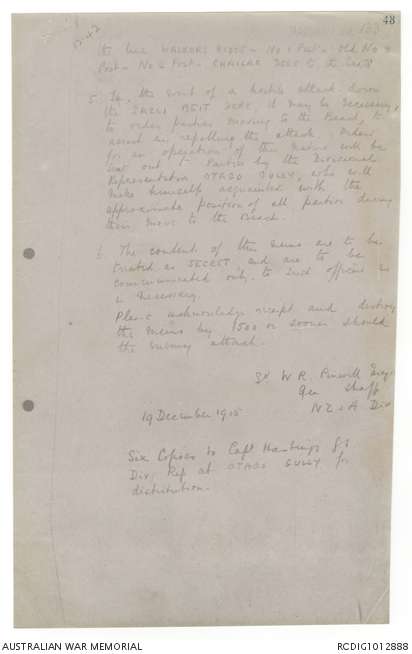 43
to line WALKERS RIDGE - No 1 Post - Old No 3
Post - No 2 Post - CHAILAK DERE to the East
5. In the event of a hostile attack down
the SAZLI BEIT DERE, it may be necessary
to order parties moving to the Beach, to
assist in repelling the attack. Orders
for an operation of this nature will be
sent out to Parties by the Divisional
Representative OTAGO GULLY, who will
make himself acquainted with the
approximate position of all parties during
their move to the Beach.
6. The contents of this memo are to be
treated as SECRET and are to be
communicated only to such officers as
is necessary
Please acknowledge receipt and destroy
this memo by 1500 or sooner should
the enemy attack.
W R. Pinwill
Gen Staff
N Z & A Div
19 December 1915
Six Copies to Capt Hastings GS
Div. Rep at OTAGO GULLY for
distribution.
AUSTRALIAN WAR MEMORIAL
RCDIG1012888